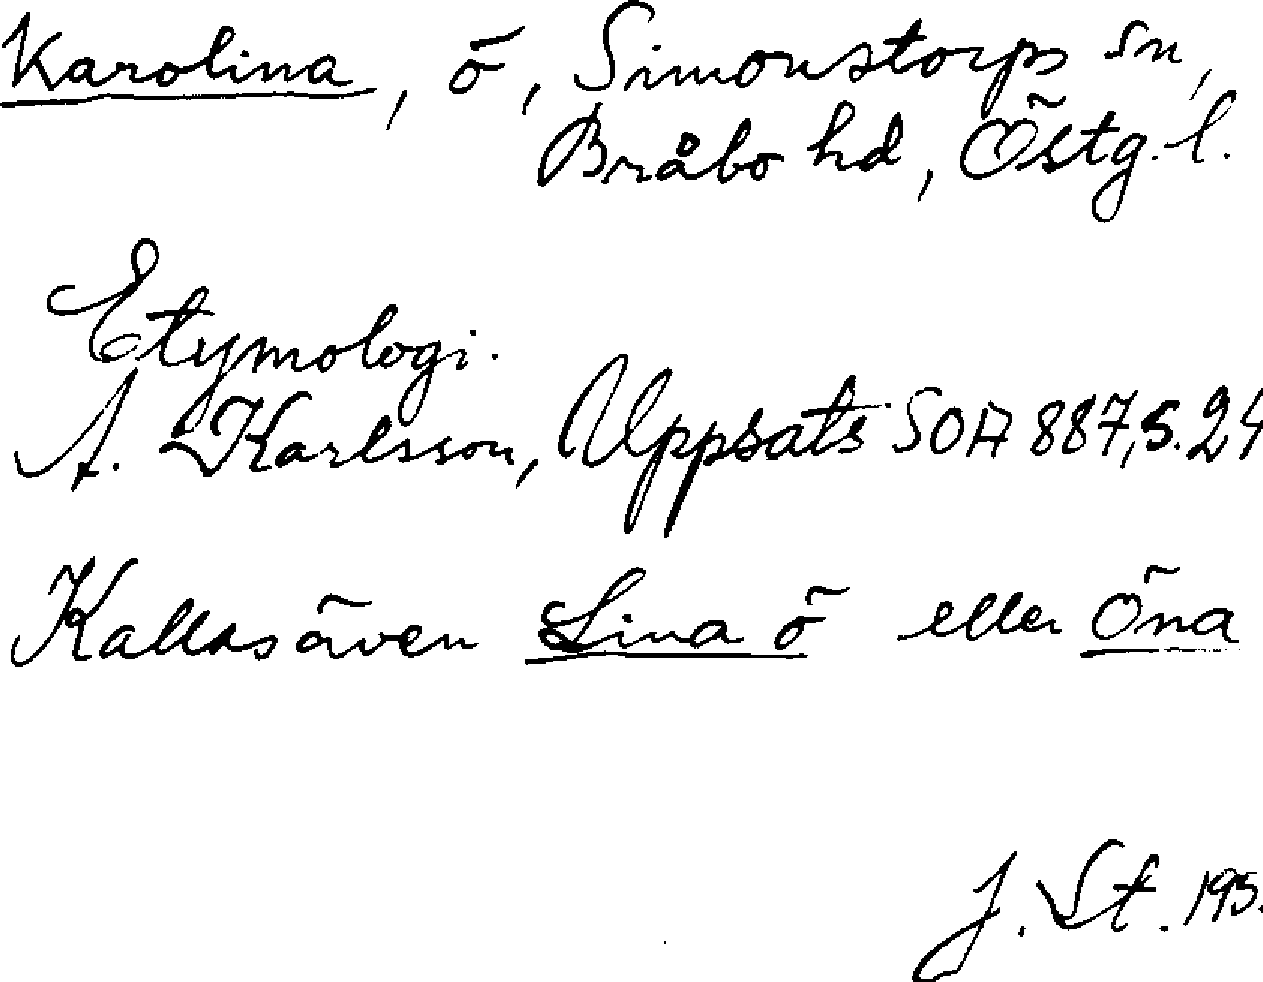 Karolina, ö, Simonstorps sn,
Bråbo hd, Östg.l.
Etymologi.
A. Karlsson, Uppsats SOA 887, s. 24
Kallas även Lina ö eller Öna
J. St. 195